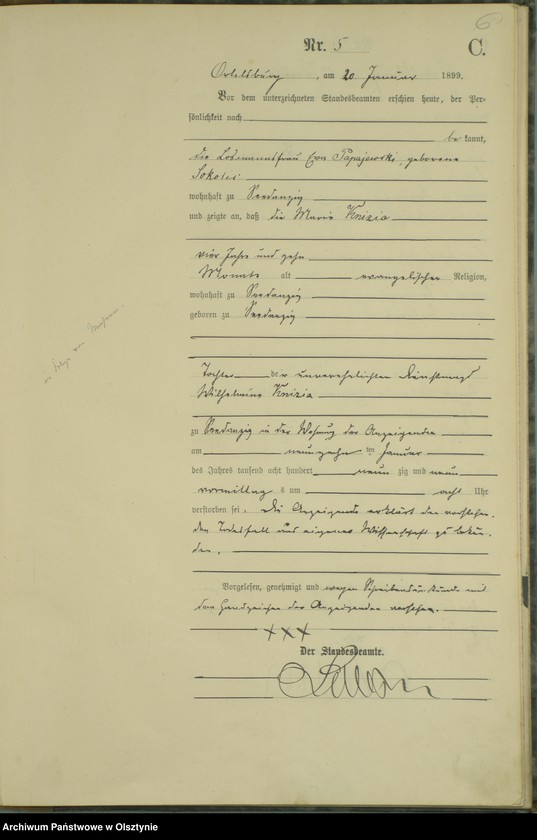 6
Nr. 5
C.
Ortelsburg, am 20 Januar 1899.
Vor dem unterzeichneten Standesbeamten erschien heute, der Per-
sönlichkeit nach
bekannt,
die Losmannsfrau Eva Papajewski, geborene
Sokolis
wohnhaft zu Seedanzig
und zeigte an, daß die Marie Knizia
vier Jahre und zehn
Monate alt evangelischer Religion,
wohnhaft zu Seedanzig
geboren zu Seedanzig
Tochter der unverehelichten Dienstmagd
Wilhelmine Knizia
zu Seedanzig in der Wohnung der Anzeigenden
am neunzehn ten Januar
des Jahres tausend acht hundert neun zig und neun
vormittags um acht Uhr
verstorben sei. Die Anzeigende erklärt den vorstehen-
den Todesfall aus eigener Wissenschaft zu bekun-
den.
Vorgelesen, genehmigt und wegen Schreibensunkunde mit
den Handzeichen der Anzeigenden versehen.
+++
Der Standesbeamte.
in Folge von Masern.
Archiwum Państwowe w Olsztynie